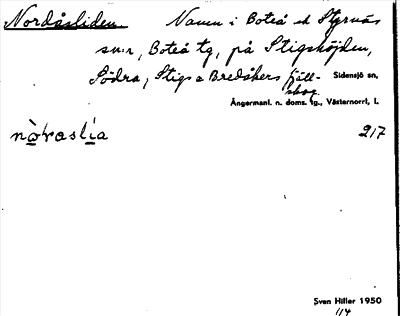 Nordåsliden. Namn i Boteå ok Styrnäs
sn:r, Boteå tg, på Stigshöjden,
Södra, Stigs o Bredåkers fjäll-
skog. Sidensjö sn,
Ångermanl. n. doms. tg., Västernorrl, l.
nọ̀ṛaslịa 217
Sven Hiller 1950
114